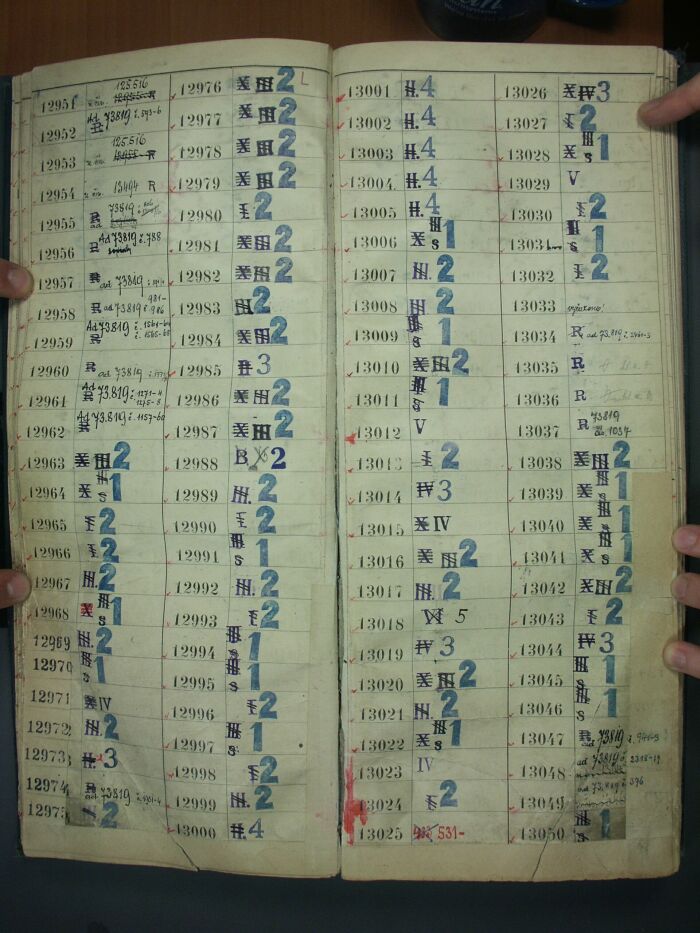 12951 125516 R
12952 Ad 73819
12953 125516 R
12954 13494 R
12955 R 73819 ad
12956 R Ad 73819 č. 788
12957 R ad 73819
12958 R ad 73819 981-986
12959 Ad 73819 R
12960 R ad 73819
12961 Ad 73819 č. 1271-4 R 1275-8
12962 Ad 73819 č. 1157-60 R
12963 X III 2
12964 X III s 1
12965 I 2
12966 I 2
12967 III. 2
12968 X III s 1
12969 III. 2
12970 III s 1
12971 X IV
12972 III. 2
12973 II. 3
12974 R ad 73819
12975 I 2
12976 X III 2 L
12977 X III 2
12978 X III 2
12979 X III 2
12980 I 2
12981 X III 2
12982 X III 2
12983 III 2
12984 X III 2
12985 II 3
12986 X III 2
12987 X III 2
12988 B 2
12989 III. 2
12990 I 2
12991 III s 1
12992 III. 2
12993 I 2
12994 III s 1
12995 III s 1
12996 I 2
12997 III s 1
12998 I 2
12999 III. 2
13000 II. 4
13001 II. 4
13002 II. 4
13003 II. 4
13004 II. 4
13005 II. 4
13006 X III s 1
13007 III. 2
13008 III 2
13009 III s 1
13010 X III 2
13011 III s 1
13012 V
13013 I 2
13014 IV 3
13015 X IV
13016 X III 2
13017 III. 2
13018 VI 5
13019 IV 3
13020 X III 2
13021 III. 2
13022 X III s 1
13023 IV
13024 I 2
13025 531-
13026 X IV 3
13027 I 2
13028 X III s 1
13029 V
13030 I 2
13031 III s 1
13032 I 2
13033
13034 R ad 73.819
13035 R
13036 R
13037 R 73819 č. 1037
13038 X III 2
13039 X III s 1
13040 X III s 1
13041 X III s 1
13042 X III 2
13043 I 2
13044 IV 3
13045 III s 1
13046 III s 1
13047 R ad 73819
13048 ad 73819 č. 2318-19
13049 ad 73.819 č. 376
13050 III s 1